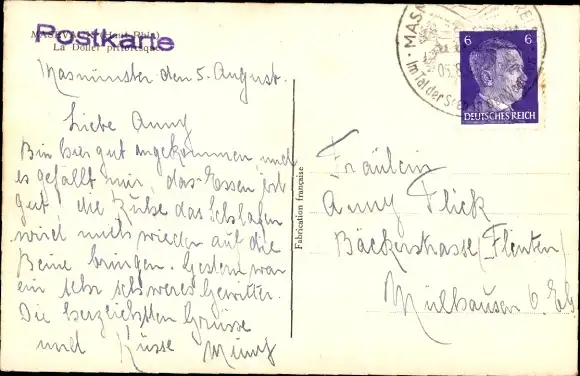 MASEVAUX (Haut-Rhin)
La Doller pittoresque
Postkarte
Masmünster den 5. August.
Liebe Anny
Bin hier gut angekommen und
es gefällt mir, das Essen ist
gut, die Ruhe das Schlafen
wird mich wieder auf die
Beine bringen. Gestern war
ein sehr schweres Gewitter.
Die herzlichsten Grüsse
und Küsse
Fabrication française
MASM
Im Tal der Seen
6 6
DEUTSCHES REICH
Fräulein
Anny Flick
Bäckerstrasse
Mülhausen